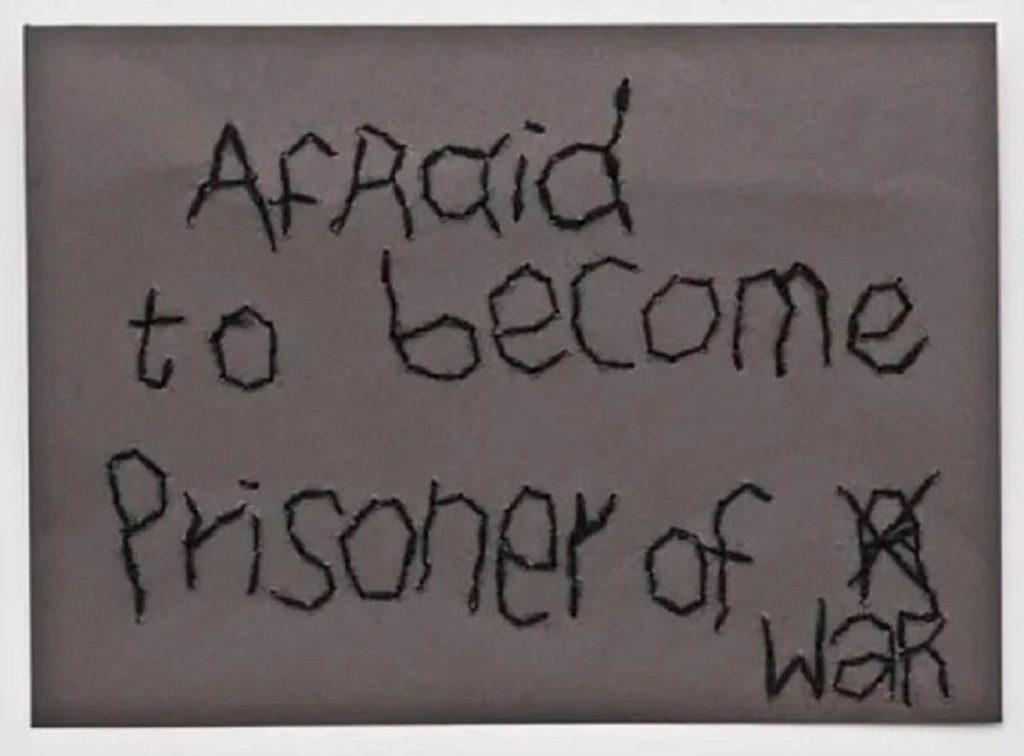 AfRaid
to become
Prisoner of
waR